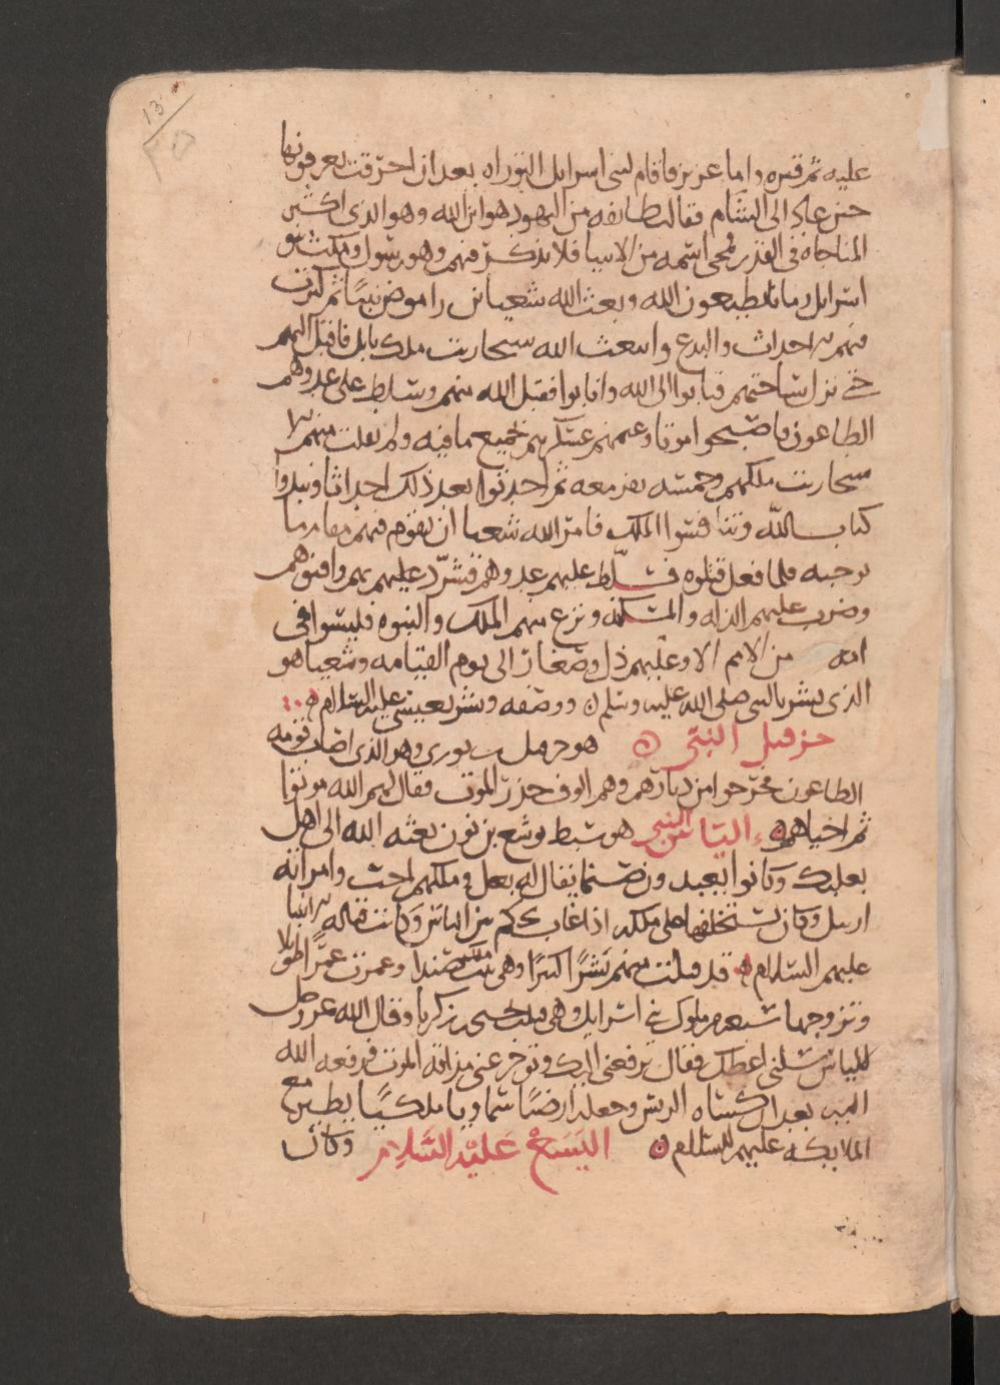 13
عليه ثم قبره واما عزير فاقام لبنى اسرايل التوراه بعد ان احترقت يعرفونها
حين عاد الى الشام فقالت طايفه من اليهود هو ابن الله وهو الذى اكثر
المناجاه فى القدر فمحى اسمه من الانبيا فلا يذكر فيهم وهو رسول ومكث بنو
اسرايل زمانا يطيعون الله وبعث الله شعيا بن راموص نبيا ثم كثرت
فيهم الاحداث والبدع وابتعث الله سنحاريب ملك بابل فاقبل اليهم
حتى نزل بساحتهم فتابوا الى الله وانابوا فقبل الله منهم وسلط على عدوهم
الطاعون فاصبحوا موتا وغنمهم عسكرهم بجميع ما فيه ولم يفلت منهم الا
سنحاريب ملكهم وخمسه نفر معه ثم احدثوا بعد ذلك احداثا ونبذوا
كتاب الله وتنافسوا الملك فامر الله شعيا ان يقوم فيهم مقاما بما
يوحيه فلما فعل قتلوه فسلط عليهم عدوهم فشرد عليهم بهم وافنوهم
وضرب عليهم الذله والمسكنه ونزع منهم الملك والنبوه فليسوا فى
امه من الامم الا وعليهم ذل وصغار الى يوم القيامه وشعيا هو
الذى بشر بالنبى صلى الله عليه وسلم ووصفه وبشر بعيسى عليه السلام
حزقيل النبى هو حزقيل بن بورى وهو الذى اصاب قومه
الطاعون فخرجوا من ديارهم وهم الوف حذر الموت فقال لهم الله موتوا
ثم احياهم الياس النبى هو سبط يوشع بن نون بعثه الله الى اهل
بعلبك وكانوا يعبدون صنما يقال له بعل وملكهم احب وامراته
ازبيل وكان يستخلفها على ملكه اذا غاب تحكم بين الناس وكانت قتاله الانبيا
عليهم السلام قد قتلت منهم بشرا كثيرا وهى بنت ملك صيدا وعمرت عمرا طويلا
وتزوجها سبعه من ملوك بنى اسرايل وهى قتلت يحيى بن زكريا وقال الله عز وجل
لالياس سلنى اعطك فقال ترفعنى اليك وتوخر عنى مذاقه الموت فرفعه الله
اليه بعد ان كساه الريش وجعله ارضيا سماويا ملكيا يطير مع
الملايكه عليهم السلام اليسع عليه السلام وكان